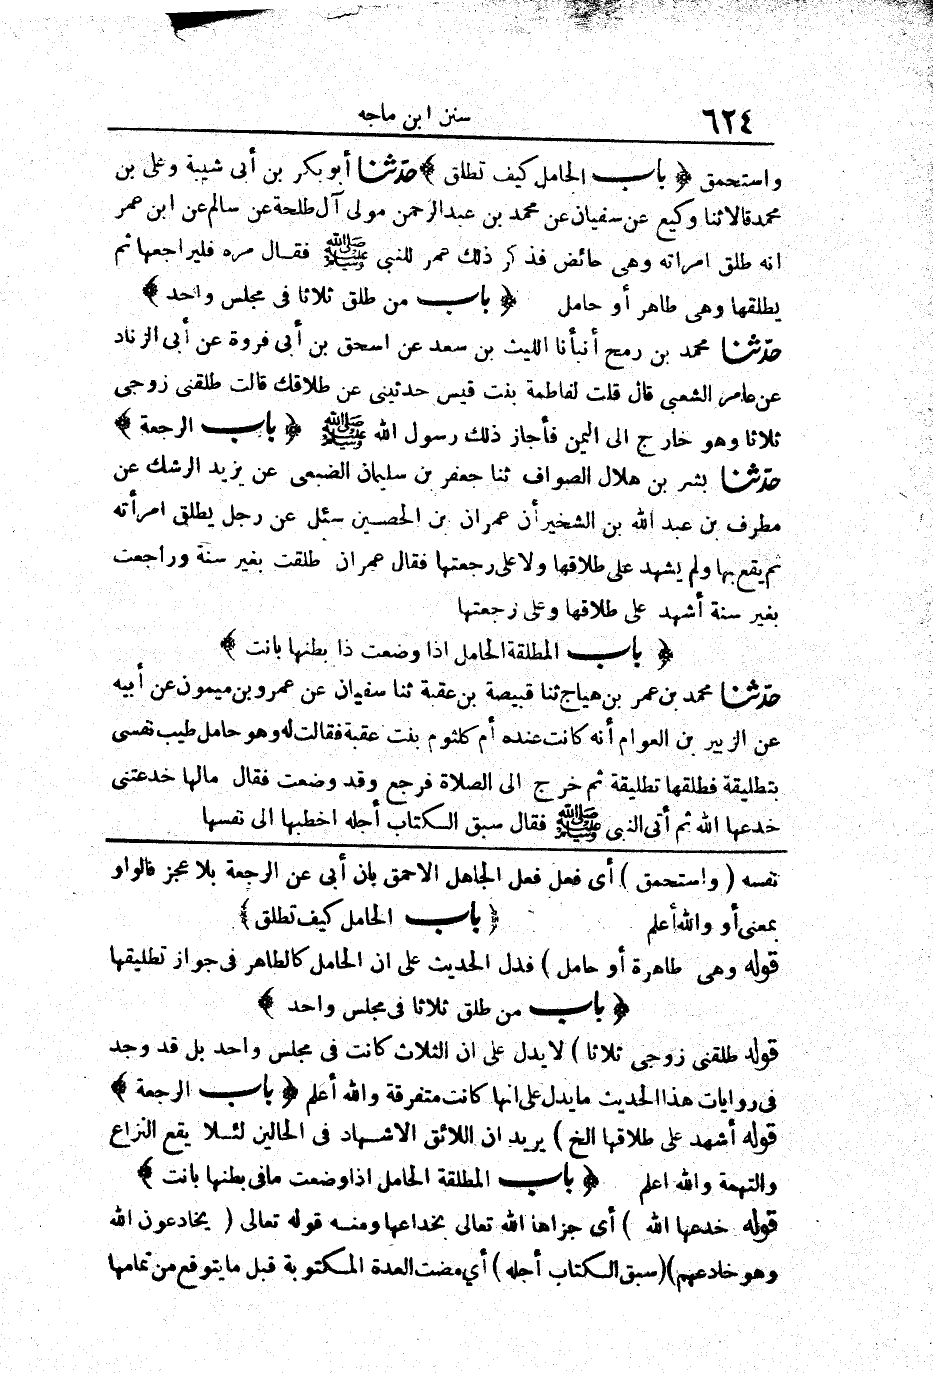 ٦٢٤
سنن ابن ماجه
واستحمق ﴿ باب الحامل كيف تطلق ﴾ حدّثنا أبو بكر بن أبى شيبة وعلى بن
محمد قالا ثنا وكيع عن سفيان عن محمد بن عبد الرحمن مولى آل طلحة عن سالم عن ابن عمر
انه طلق امراته وهى حائض فذكر ذلك عمر للنبى ﷺ فقال مره فليراجعها ثم
يطلقها وهى طاهر أو حامل ﴿ باب من طلق ثلاثا فى مجلس واحد ﴾
حدّثنا محمد بن رمح أنبأنا الليث بن سعد عن اسحق بن أبى فروة عن أبى الزناد
عن عامر الشعبى قال قلت لفاطمة بنت قيس حدثينى عن طلاقك قالت طلقنى زوجى
ثلاثا وهو خارج الى اليمن فأجاز ذلك رسول الله ﷺ ﴿ باب الرجعة ﴾
حدّثنا بشر بن هلال الصواف ثنا جعفر بن سليمان الضبعى عن يزيد الرشك عن
مطرف بن عبد الله بن الشخير أن عمران بن الحصين سئل عن رجل يطلق امرأته
ثم يقع بها ولم يشهد على طلاقها ولا على رجعتها فقال عمران طلقت بغير سنة وراجعت
بغير سنة أشهد على طلاقها وعلى رجعتها
﴿ باب المطلقة الحامل اذا وضعت ذا بطنها بانت ﴾
حدّثنا محمد بن عمر بن هياج ثنا قبيصة بن عقبة ثنا سفيان عن عمرو بن ميمون عن أبيه
عن الزبير بن العوام أنه كانت عنده أم كلثوم بنت عقبة فقالت له وهو حامل طيب نفسى
بتطليقة فطلقها تطليقة ثم خرج الى الصلاة فرجع وقد وضعت فقال مالها خدعتنى
خدعها الله ثم أتى النبى ﷺ فقال سبق الكتاب أجله اخطبها الى نفسها
نفسه ( واستحمق ) أى فعل فعل الجاهل الاحمق بان أبى عن الرجعة بلا عجز فالواو
بمعنى أو والله أعلم ﴿ باب الحامل كيف تطلق ﴾
قوله وهى طاهرة أو حامل ) فدل الحديث على ان الحامل كالطاهر فى جواز تطليقها
﴿ باب من طلق ثلاثا فى مجلس واحد ﴾
قوله طلقنى زوجى ثلاثا ) لا يدل على ان الثلاث كانت فى مجلس واحد بل قد وجد
فى روايات هذا الحديث ما يدل على انها كانت متفرقة والله أعلم ﴿ باب الرجعة ﴾
قوله أشهد على طلاقها الخ ) يريد ان اللائق الاشهاد فى الحالين لئلا يقع النزاع
والتهمة والله اعلم ﴿ باب المطلقة الحامل اذا وضعت مافى بطنها بانت ﴾
قوله خدعها الله ) أى جزاها الله تعالى بخداعها ومنه قوله تعالى ( يخادعون الله
وهو خادعهم)(سبق الكتاب أجله) أي مضت العدة المكتوبة قبل ما يتوقع من تمامها